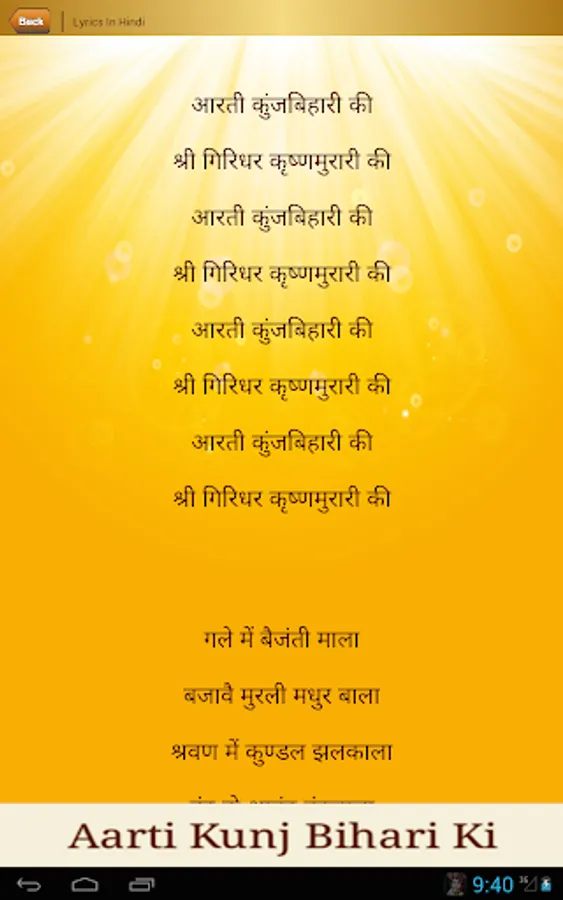 Back Lyrics In Hindi
आरती कुंजबिहारी की
श्री गिरिधर कृष्णमुरारी की
आरती कुंजबिहारी की
श्री गिरिधर कृष्णमुरारी की
आरती कुंजबिहारी की
श्री गिरिधर कृष्णमुरारी की
आरती कुंजबिहारी की
श्री गिरिधर कृष्णमुरारी की
गले में बैजंती माला
बजावै मुरली मधुर बाला
श्रवण में कुण्डल झलकाला
Aarti Kunj Bihari Ki
9:40